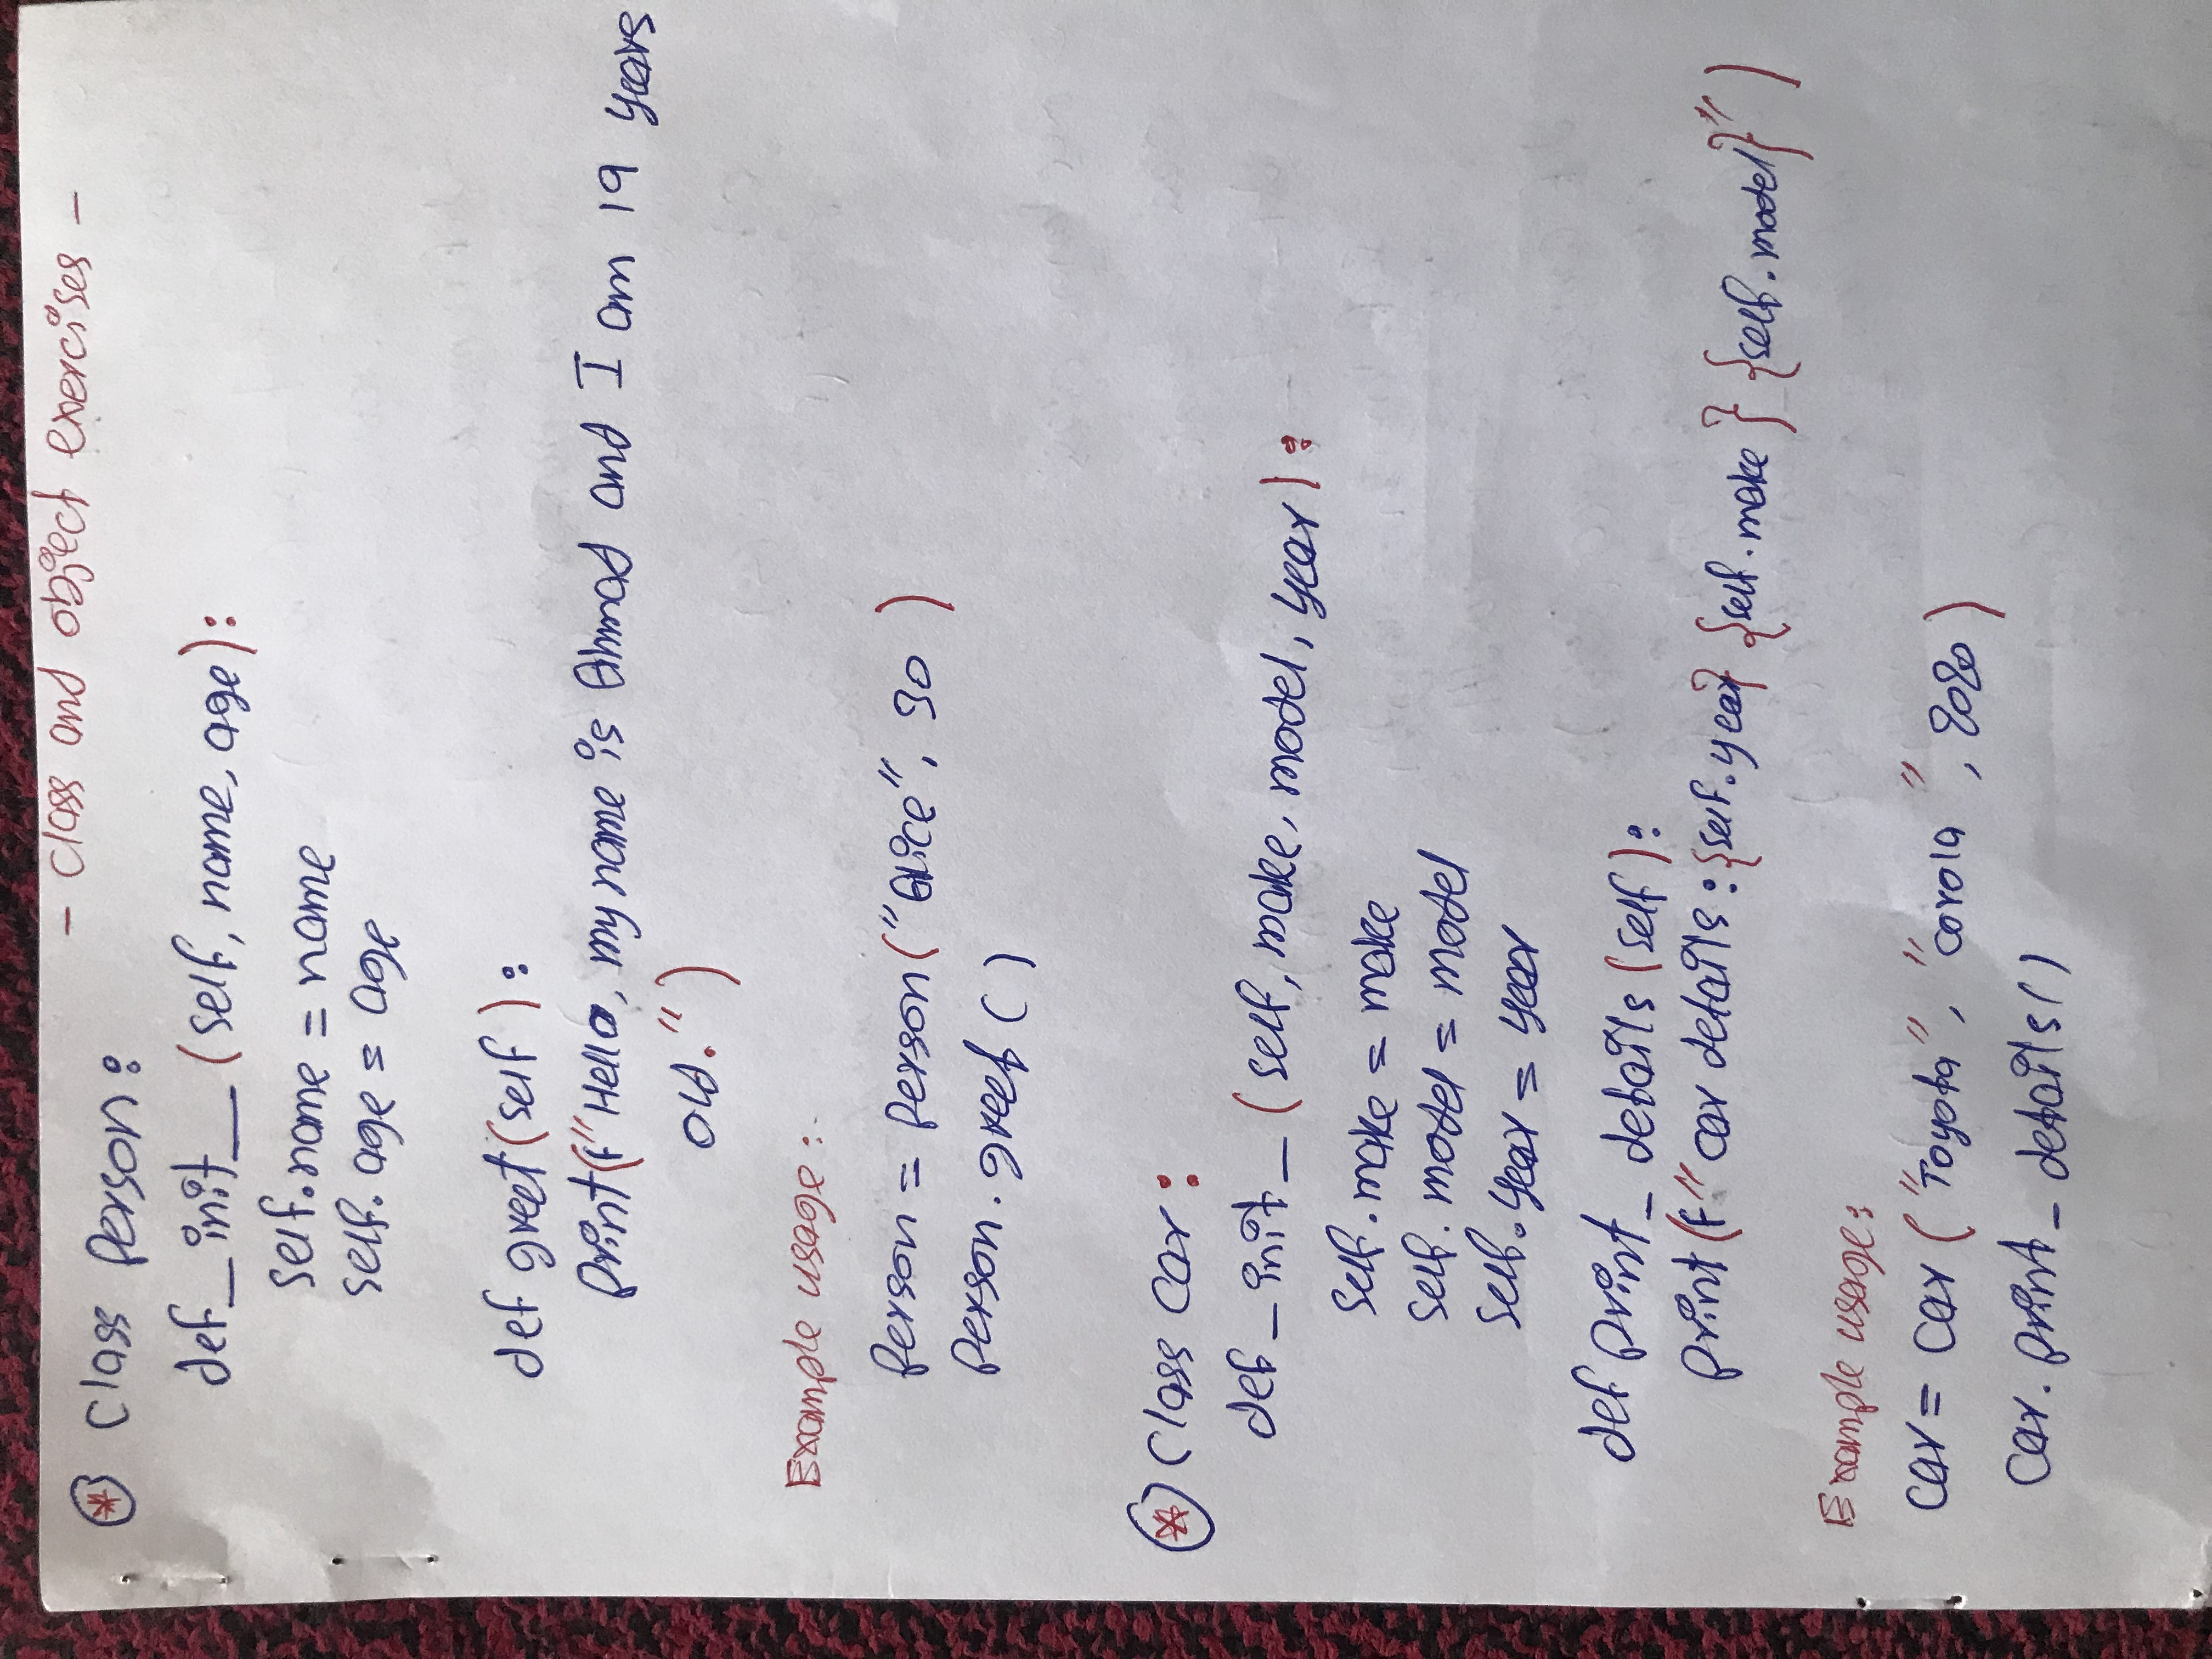 - class and object exercises -
* Class Person:
def_init__(self, name, age):
self.name = name
self.age = age
def greet(self):
print(f"Hello, my name is Ahmad and I am 19 years
old.")
Example usage:
Person = Person("Alice", 30)
Person.greet()
* Class Car:
def_init_(self, make, model, year):
self.make = make
self.model = model
self.year = year
def print_details(self):
print(f"car details:{self.year} {self.make} {self.model}")
Example usage:
Car = Car("Toyota", "corola", 2020)
Car.print_details()